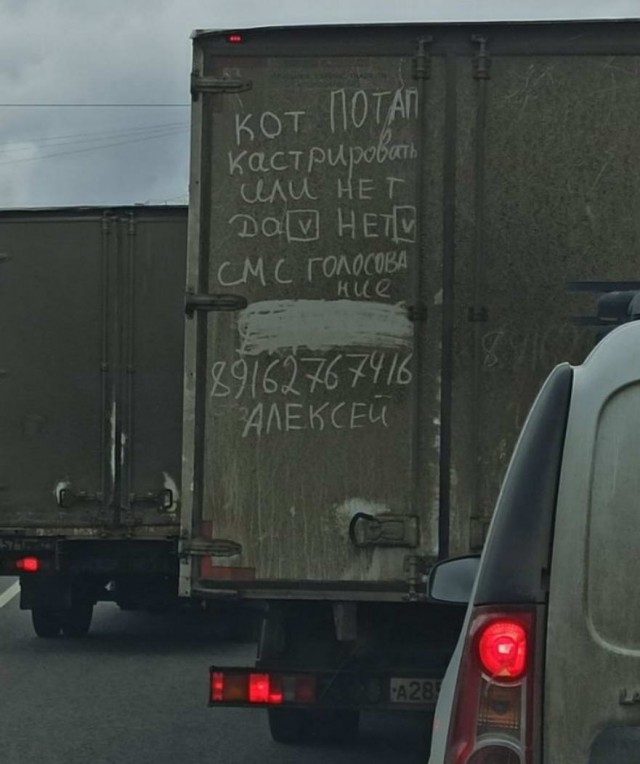 КОТ ПОТАП
кастрировать
или НЕТ
Да V НЕТ V
СМС ГОЛОСОВА
ние
89162767416
АЛЕКСЕЙ
А28